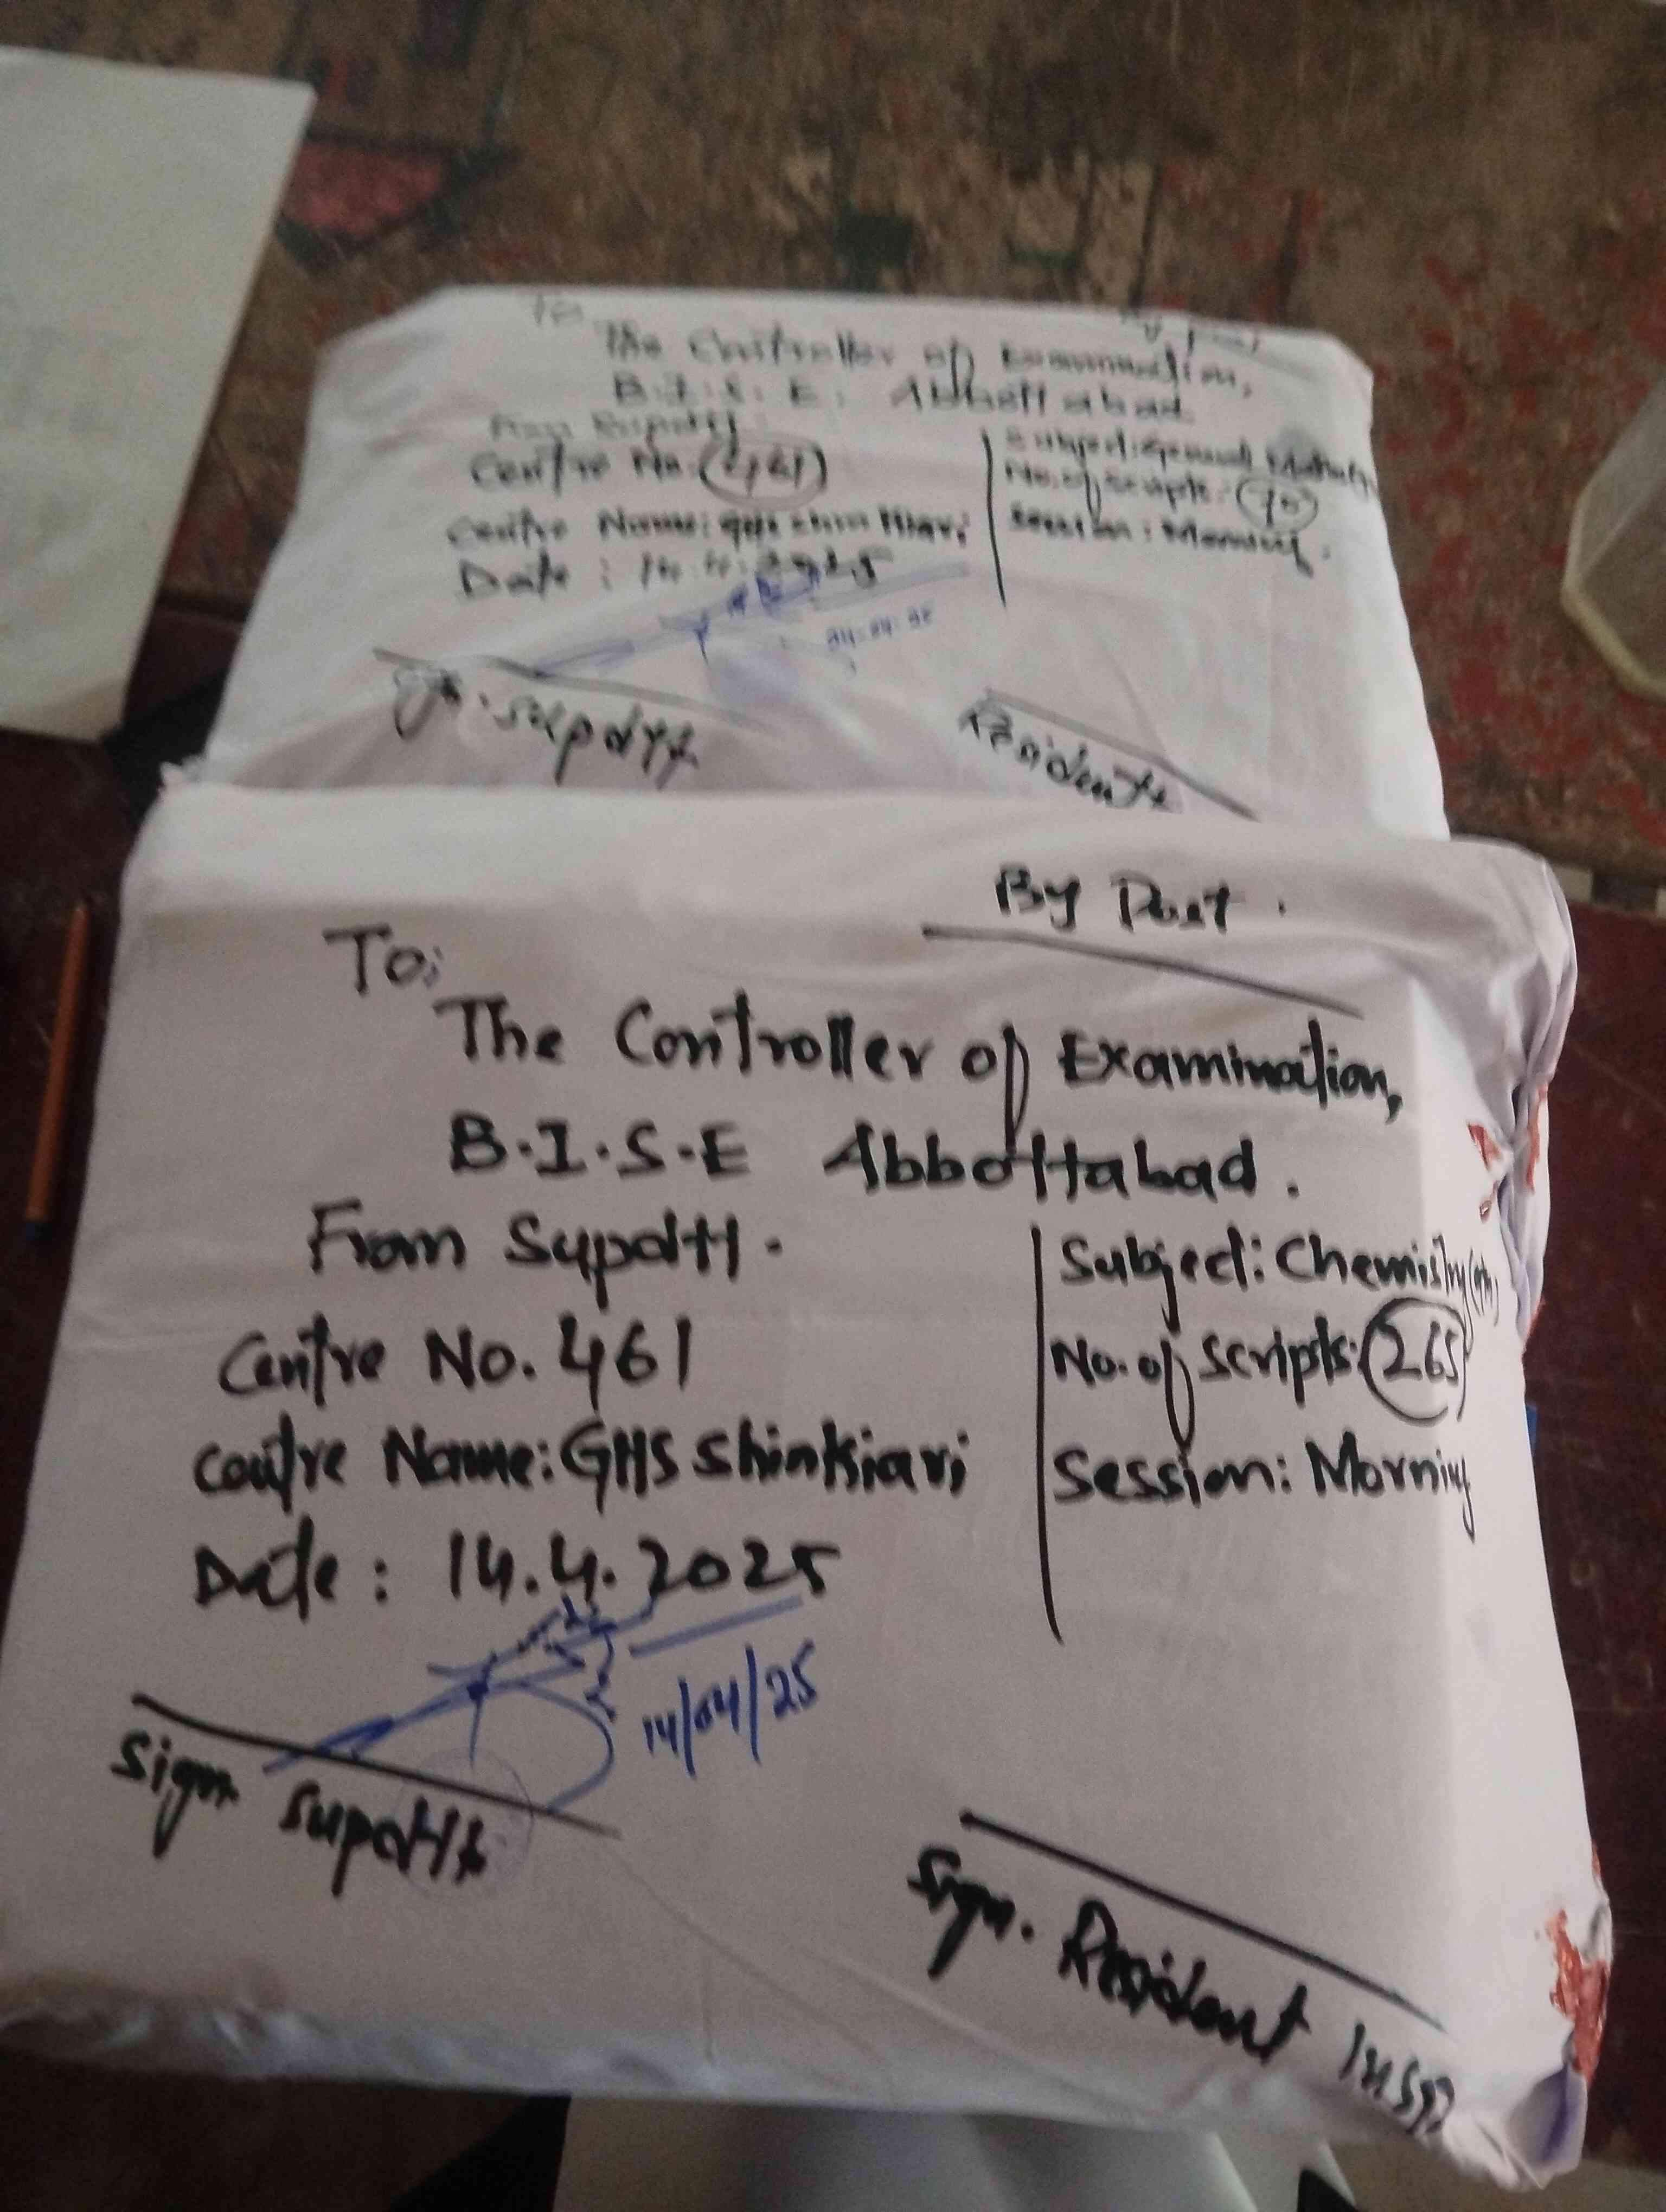 To
The Controller of Examination,
B.I.S.E. Abbottabad
From Supdtt
Centre No. 461
Centre Name: GHS Shinkiari
Date : 14.4.2025
Subject: General
No. of scripts: 70
Session: Morning.
Supdtt
Resident
By Post.
To;
The Controller of Examination,
B.I.S.E Abbottabad.
From Supdtt.
Centre No. 461
Centre Name: GHS Shinkiari
Date : 14.4.2025
Subject: Chemistry
No. of scripts: 265
Session: Morning
14/04/25
Sign Supdtt
Sign. Resident Insp